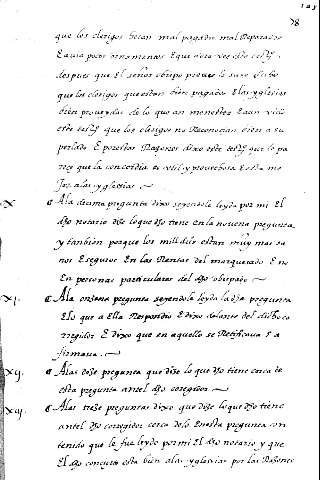 78
que los clerigos heran mal pagados mal Reparados
E avia pocos ornamentos E que a este
despues que El señor obispo provee lo suso dicho
que los clerigos questan bien pagados E las yglesias
bien proveydas de lo que an menester E aun vido
este testigo que los clerigos no Reconocian bien a su
perlado E por estas Razones dixo este testigo que le pa
rece que la concordia es util y provechosa E esta me
jor a las yglesias
X ¶ A la decima pregunta dixo seyendole leyda por mi El
dho notario dize lo que dho tiene en la novena pregunta
y tanbien porque los mill dus estan muy mas sa
nos E seguros En las Rentas del marquesado E no
En personas particulares del dho obispado
XI. ¶ A la onzena pregunta seyendole leyda la dha pregunta
E lo que a Ella Respondio E dixo delante del dicho co
rregidor E dixo que en aquello se Retificava E a
firmava
XII. ¶ A las doze preguntas que dize lo que dho tiene cerca de
esta pregunta antel dho coregidor
XIII. ¶ A las treze preguntas dixo que dize lo que dho tiene
antel dho coregidor cerca de lo En esta pregunta con
tenido que le fue leydo por mi El dho notario y que
El dho concierto esta bien a las yglesias por las Razones